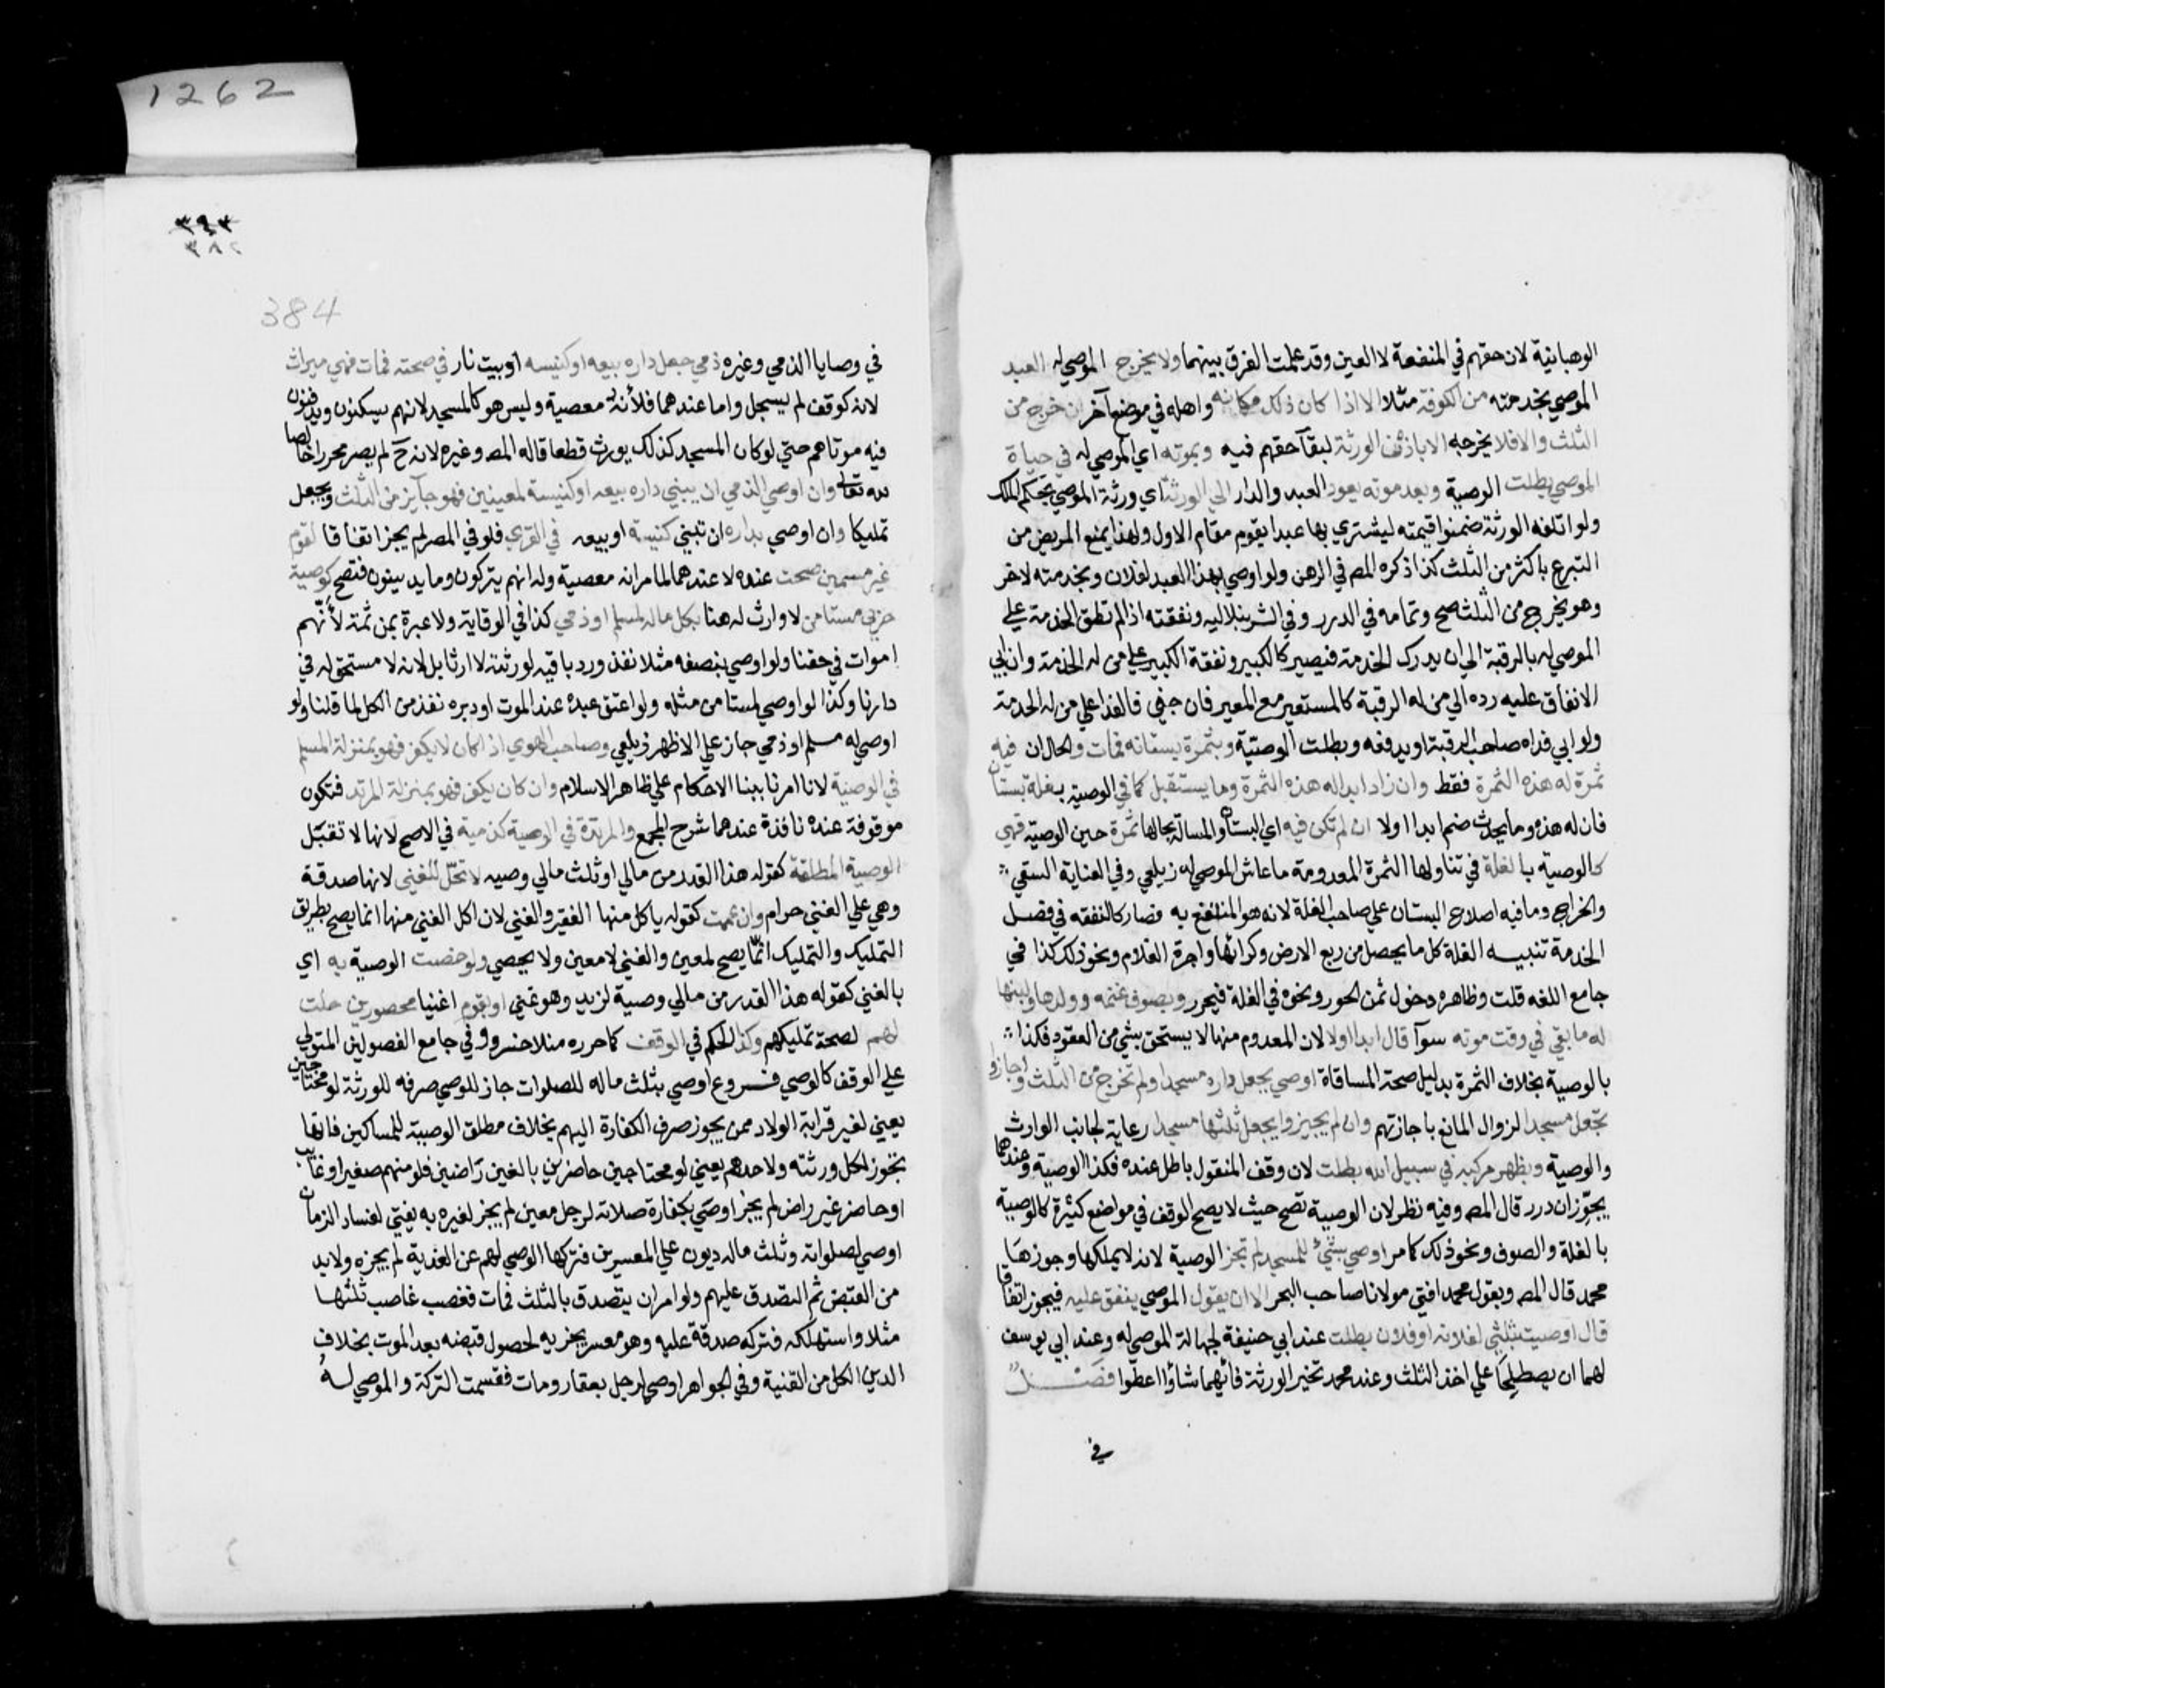 الوهبانية لان حقهم في المنفعة لا العين وقد علمت الفرق بينهما ولا يخرج الموصي له العبد
الموصي بخدمته من الكوفة مثلا الا اذا كان ذلك مكانه واهله في موضع آخر ان خرج من
الثلث والا فلا يخرجه الا باذن الورثة لبقآ حقهم فيه وبموته اي الموصي له في حياة
الموصي بطلت الوصية وبعد موته يعود العبد والدار الي الورثة اي ورثة الموصي بحكم الملك
ولو اتلفه الورثة ضمنوا قيمته ليشتري بها عبدا يقوم مقام الاول ولهذا يمنع المريض من
التبرع باكثر من الثلث كذا ذكره المص في الرهن ولو اوصي بهذا العبد لفلان وبخدمته لاخر
وهو يخرج من الثلث صح وتمامه في الدرر وفي الشرنبلاليه ونفقته اذا لم تطق الخدمة علي
الموصي له بالرقبة الي ان يدرك الخدمة فيصير كالكبير ونفقة الكبير علي من له الخدمة وان ابي
الانفاق عليه رده الي من له الرقبة كالمستعير مع المعير فان جني فالفدا علي من له الخدمة
ولو ابي فداه صاحب الرقبة او يدفعه وبطلت الوصية وبثمرة بستانه فمات والحال ان فيه
ثمرة له هذه الثمرة فقط وان زاد ابدا له هذه الثمرة وما يستقبل كما في الوصية بغلة بستان
فان له هذه وما يحدث ضم ابدا او لا ان لم تكن فيه اي البستان والمسالة بحالها ثمرة حين الوصية فهي
كالوصية بالغلة في تناولها الثمرة المعدومة ما عاش الموصي له زيلعي وفي العناية السقي
والخراج وما فيه اصلاح البستان علي صاحب الغلة لانه هو المنتفع به فصار كالنفقة في فصل
الخدمة تنبيه الغلة كل ما يحصل من ريع الارض وكرائها واجرة الغلام ونحو ذلك كذا في
جامع اللغه قلت وظاهره دخول ثمن الحور ونحوه في الغلة فيحرر وبصوف غنمه وولدها ولبنها
له ما بقي في وقت موته سوآ قال ابدا او لا لان المعدوم منها لا يستحق بشي من العقود فكذا
بالوصية بخلاف الثمرة بدليل صحة المساقاة اوصي بجعل داره مسجدا ولم تخرج من الثلث واجازوا
تجعل مسجدا لزوال المانع باجازتهم وان لم يجيزوا يجعل ثلثها مسجدا رعاية لجانب الوارث
والوصية وبظهر مركبه في سبيل الله بطلت لان وقف المنقول باطل عنده فكذا الوصية وعندهما
يجوزان درر قال المص وفيه نظر لان الوصية تصح حيث لا يصح الوقف في مواضع كثيرة كالوصية
بالغلة والصوف ونحو ذلك كما مر اوصي بشيء للمسجد لم تجز الوصية لانه لا يملك وجوزها
محمد قال المص وبقول محمد افتي مولانا صاحب البحر الا ان يقول الموصي ينفق عليه فيجوز اتفاقا
قال اوصيت بثلثي لفلان او فلان بطلت عند ابي حنيفة لجهالة الموصي له وعند ابي يوسف
لهما ان يصطلحا علي اخذ الثلث وعند محمد تخير الورثة فايهما شاؤا اعطوا فصل
في
1262
٣٩٣
٣٨٢
384
في وصايا الذمي وغيره ذمي جعل داره بيعه او كنيسه او بيت نار في صحته فمات فهي ميراث
لانه كوقف لم يسجل واما عندهما فلأنه معصية وليس هو كالمسجد لانهم يسكنون ويدفنون
فيه موتاهم حتي لو كان المسجد كذلك يورث قطعا قاله المص وغيره لانه ح لم يصر محررا خالصا
لله تعالي وان اوصي الذمي ان يبني داره بيعه او كنيسة لمعينين فهو جآيز من الثلث ويجعل
تمليكا وان اوصي بداره ان تبني كنيسة او بيعه في القري فلو في المصر لم يجز اتفاقا لقوم
غير مسمين صحت عنده لا عندهما لما مر انه معصية وله انهم يتركون وما يدينون فتصح كوصية
حربي مستامن لا وارث له هنا بكل ماله لمسلم او ذمي كذا في الوقاية ولا عبرة بمن ثمة لأنهم
اموات في حقنا ولو اوصي بنصفه مثلا نفذ ورد باقيه لورثته لا ارثا بل لانه لا مستحق له في
دارنا وكذا لو اوصي لمستامن مثله ولو اعتق عبده عند الموت او دبره نفذ من الكل لما قلنا ولو
اوصي له مسلم او ذمي جاز علي الاظهر زيلعي وصاحب الهوي اذا كان لا يكفر فهو بمنزلة المسلم
في الوصية لانا امرنا ببنا الاحكام علي ظاهر الاسلام وان كان يكفر فهو بمنزلة المرتد فتكون
موقوفة عنده نافذة عندهما شرح المجمع والمرتدة في الوصية كذمية في الاصح لانها لا تقتل
الوصية المطلقة كقوله هذا القدر من مالي او ثلث مالي وصيه لا تحل للغني لانها صدقة
وهي علي الغني حرام وان عمت كقوله ياكل منها الفقير والغني لان اكل الغني منها انما يصح بطريق
التمليك والتمليك انما يصح لمعين والغني لا معين ولا يحصي ولو خصت الوصية به اي
بالغني كقوله هذا القدر من مالي وصية لزيد وهو غني او لقوم اغنيا محصورين حلت
لهم لصحة تمليكهم وكذا الحكم في الوقف كما حرره منلا خسرو وفي جامع الفصولين المتولي
علي الوقف كالوصي فروع اوصي بثلث ماله للصلوات جاز للوصي صرفه للورثة لو محتاجين
يعني لغير قرابة الولاد ممن يجوز صرف الكفارة اليهم بخلاف مطلق الوصية للمساكين فانها
تجوز لكل ورثته ولاحدهم يعني لو محتاجين حاضرين بالغين راضين فلو منهم صغير او غائب
او حاضر غير راض لم يجز اوصي بكفارة صلاته لرجل معين لم يجز لغيره به يفتي لفساد الزمان
اوصي لصلواته وثلث ماله ديون علي المعسرين فتركها الوصي لهم عن الفدية لم يجزه ولا بد
من القبض ثم التصدق عليهم ولو امر ان يتصدق بالثلث فمات فغصب غاصب ثلثها
مثلا واستهلكه فتركه صدقة عليه وهو معسر يجزيه لحصول قبضه بعد الموت بخلاف
الدين الكل من القنية وفي الجواهر اوصي لرجل بعقار ومات فقسمت التركة والموصي له